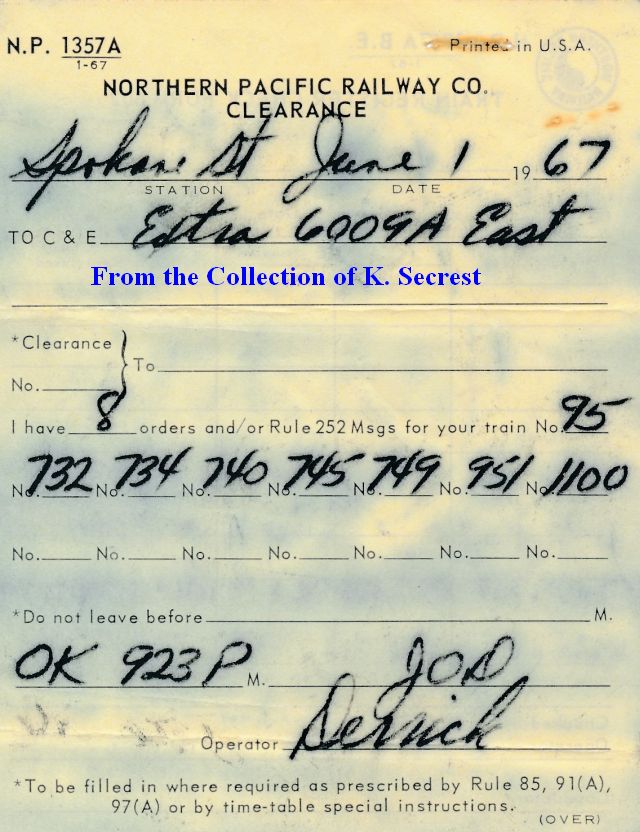 N.P. 1357A Printed in U.S.A.
1-67
NORTHERN PACIFIC RAILWAY CO.
CLEARANCE
Spokane St June 1 1967
STATION DATE
TO C & E Extra 6009A East
From the Collection of K. Secrest
*Clearance
No. To
I have 8 orders and/or Rule 252 Msgs for your train No. 95
No. 732 No. 734 No. 740 No. 745 No. 749 No. 951 No. 1100
No. No. No. No. No. No. No.
*Do not leave before M.
OK 923 P M. JOD
Operator Dernick
*To be filled in where required as prescribed by Rule 85, 91(A),
97(A) or by time-table special instructions.
(OVER)